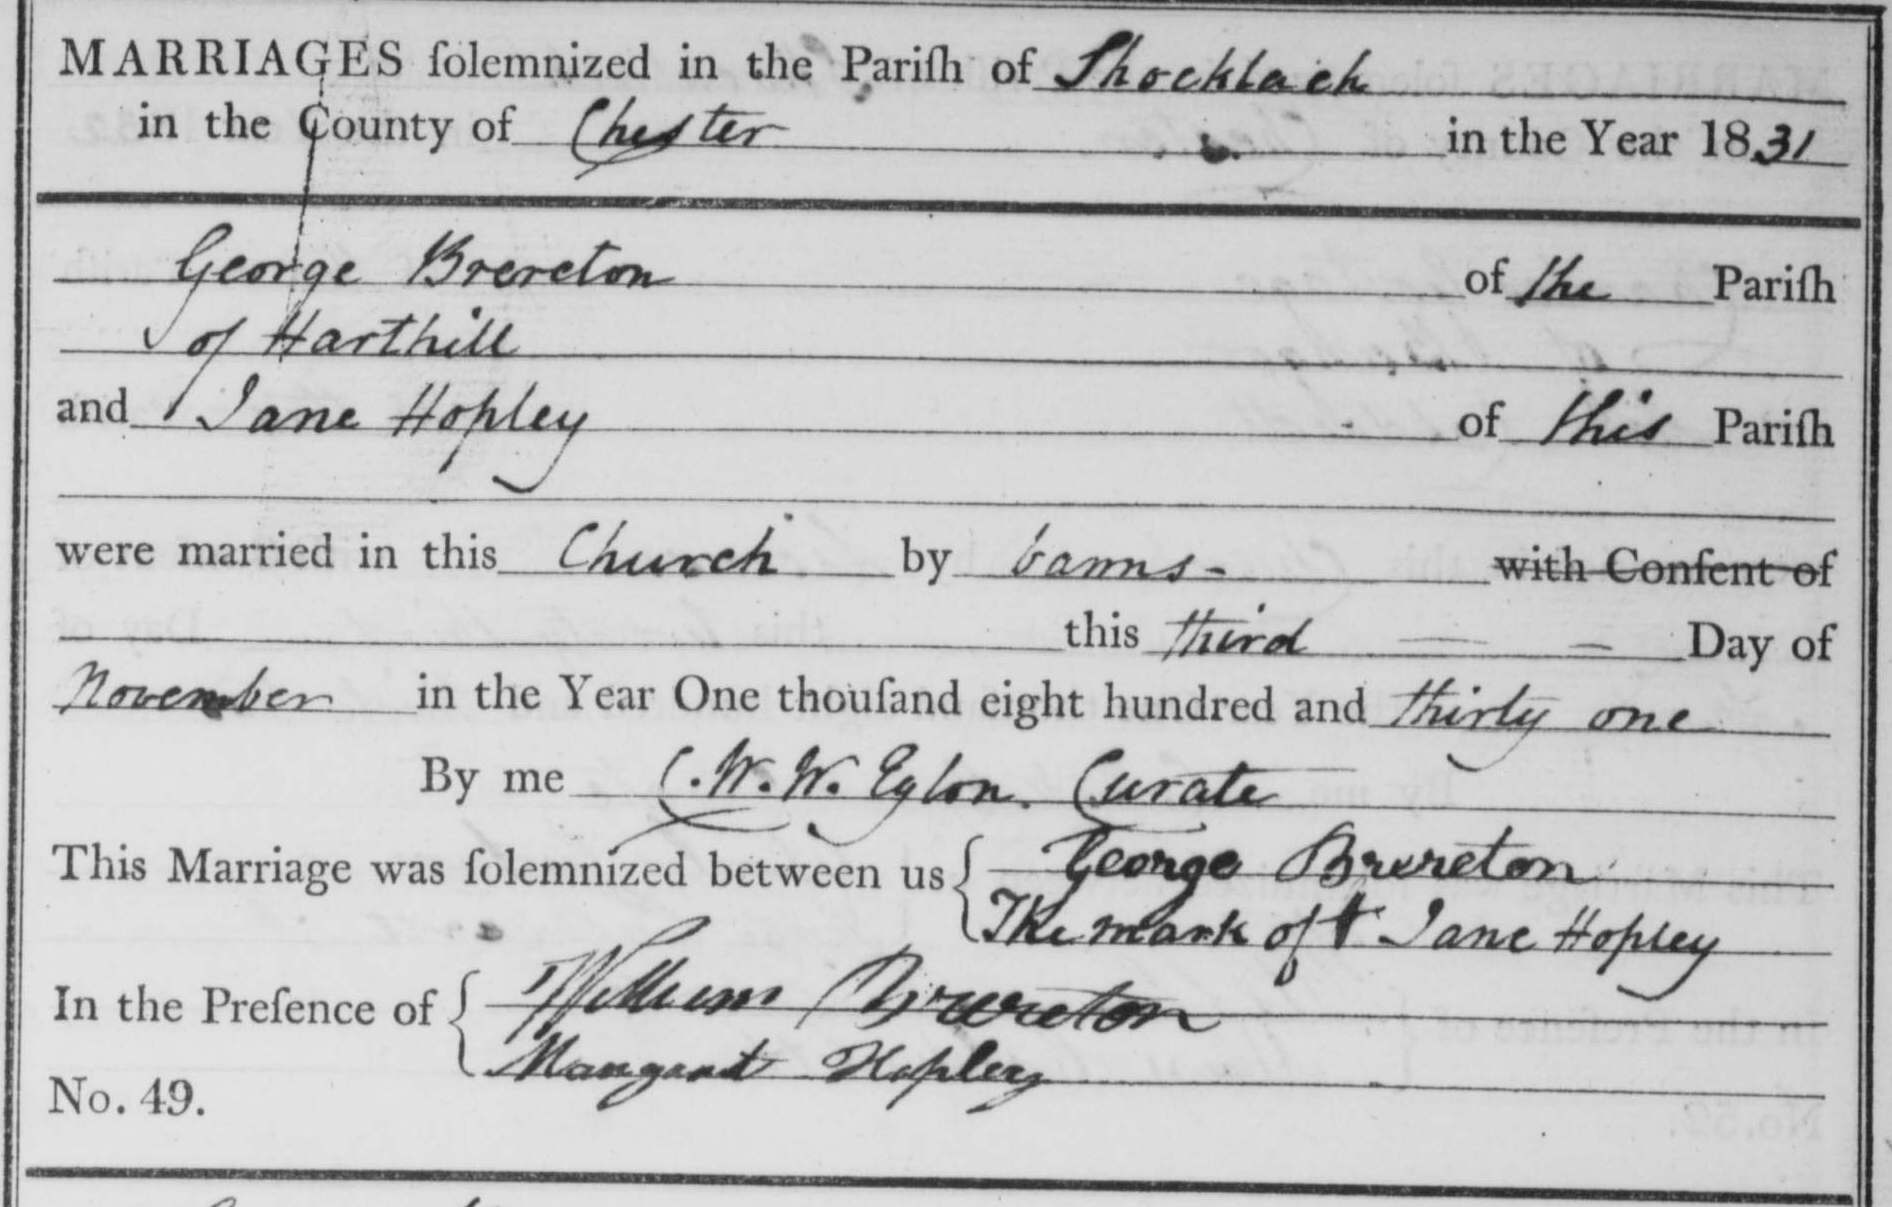 MARRIAGES ſolemnized in the Pariſh of Shocklach
in the County of Chester in the Year 1831
George Brereton of the Pariſh
of Harthill
and Jane Hopley of this Pariſh
were married in this Church by banns - with Conſent of
this third — – Day of
November in the Year One thouſand eight hundred and thirty one
By me C. W. W. Eyton. Curate
This Marriage was ſolemnized between us { George Brereton
The mark of + Jane Hopley
In the Preſence of { William Brereton
Margaret Hopley
No. 49.